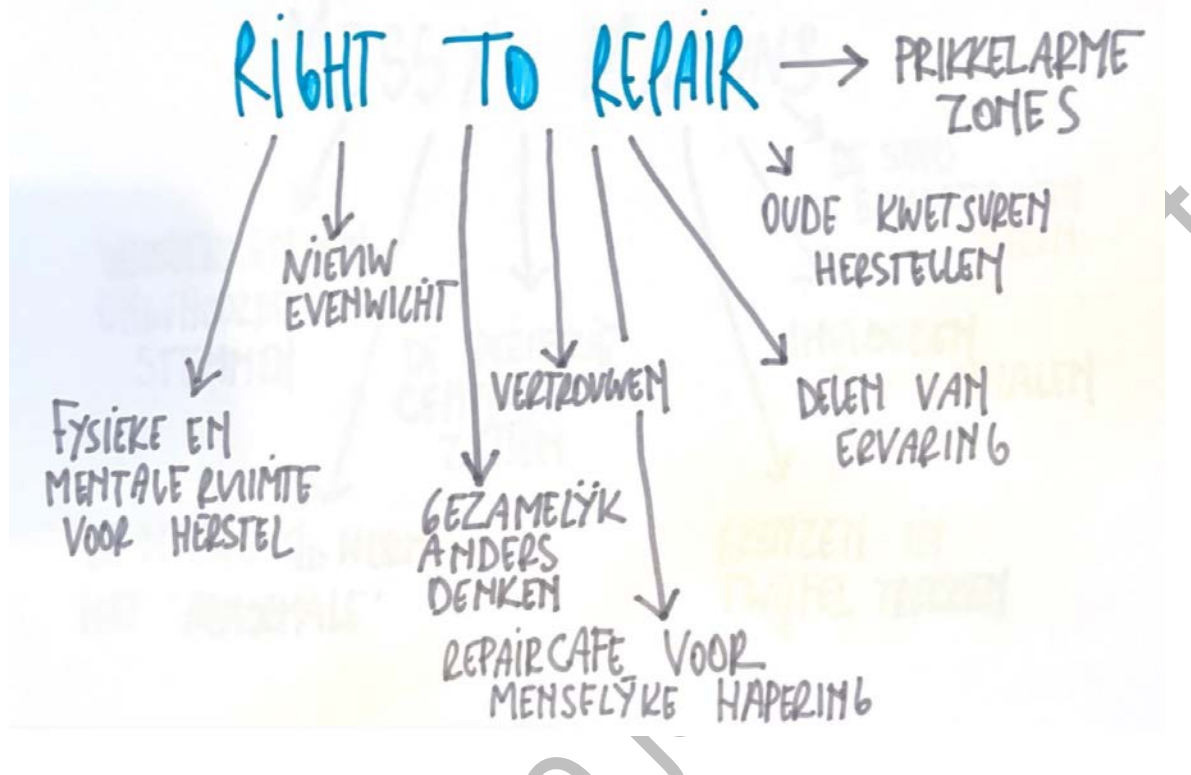 RIGHT TO REPAIR
PRIKKELARME
ZONES
OUDE KWETSUREN
HERSTELLEN
NIEUW
EVENWICHT
VERTROUWEN
DELEN VAN
ERVARING
FYSIEKE EN
MENTALE RUIMTE
VOOR HERSTEL
GEZAMELIJK
ANDERS
DENKEN
REPAIRCAFE VOOR
MENSELIJKE HAPERING